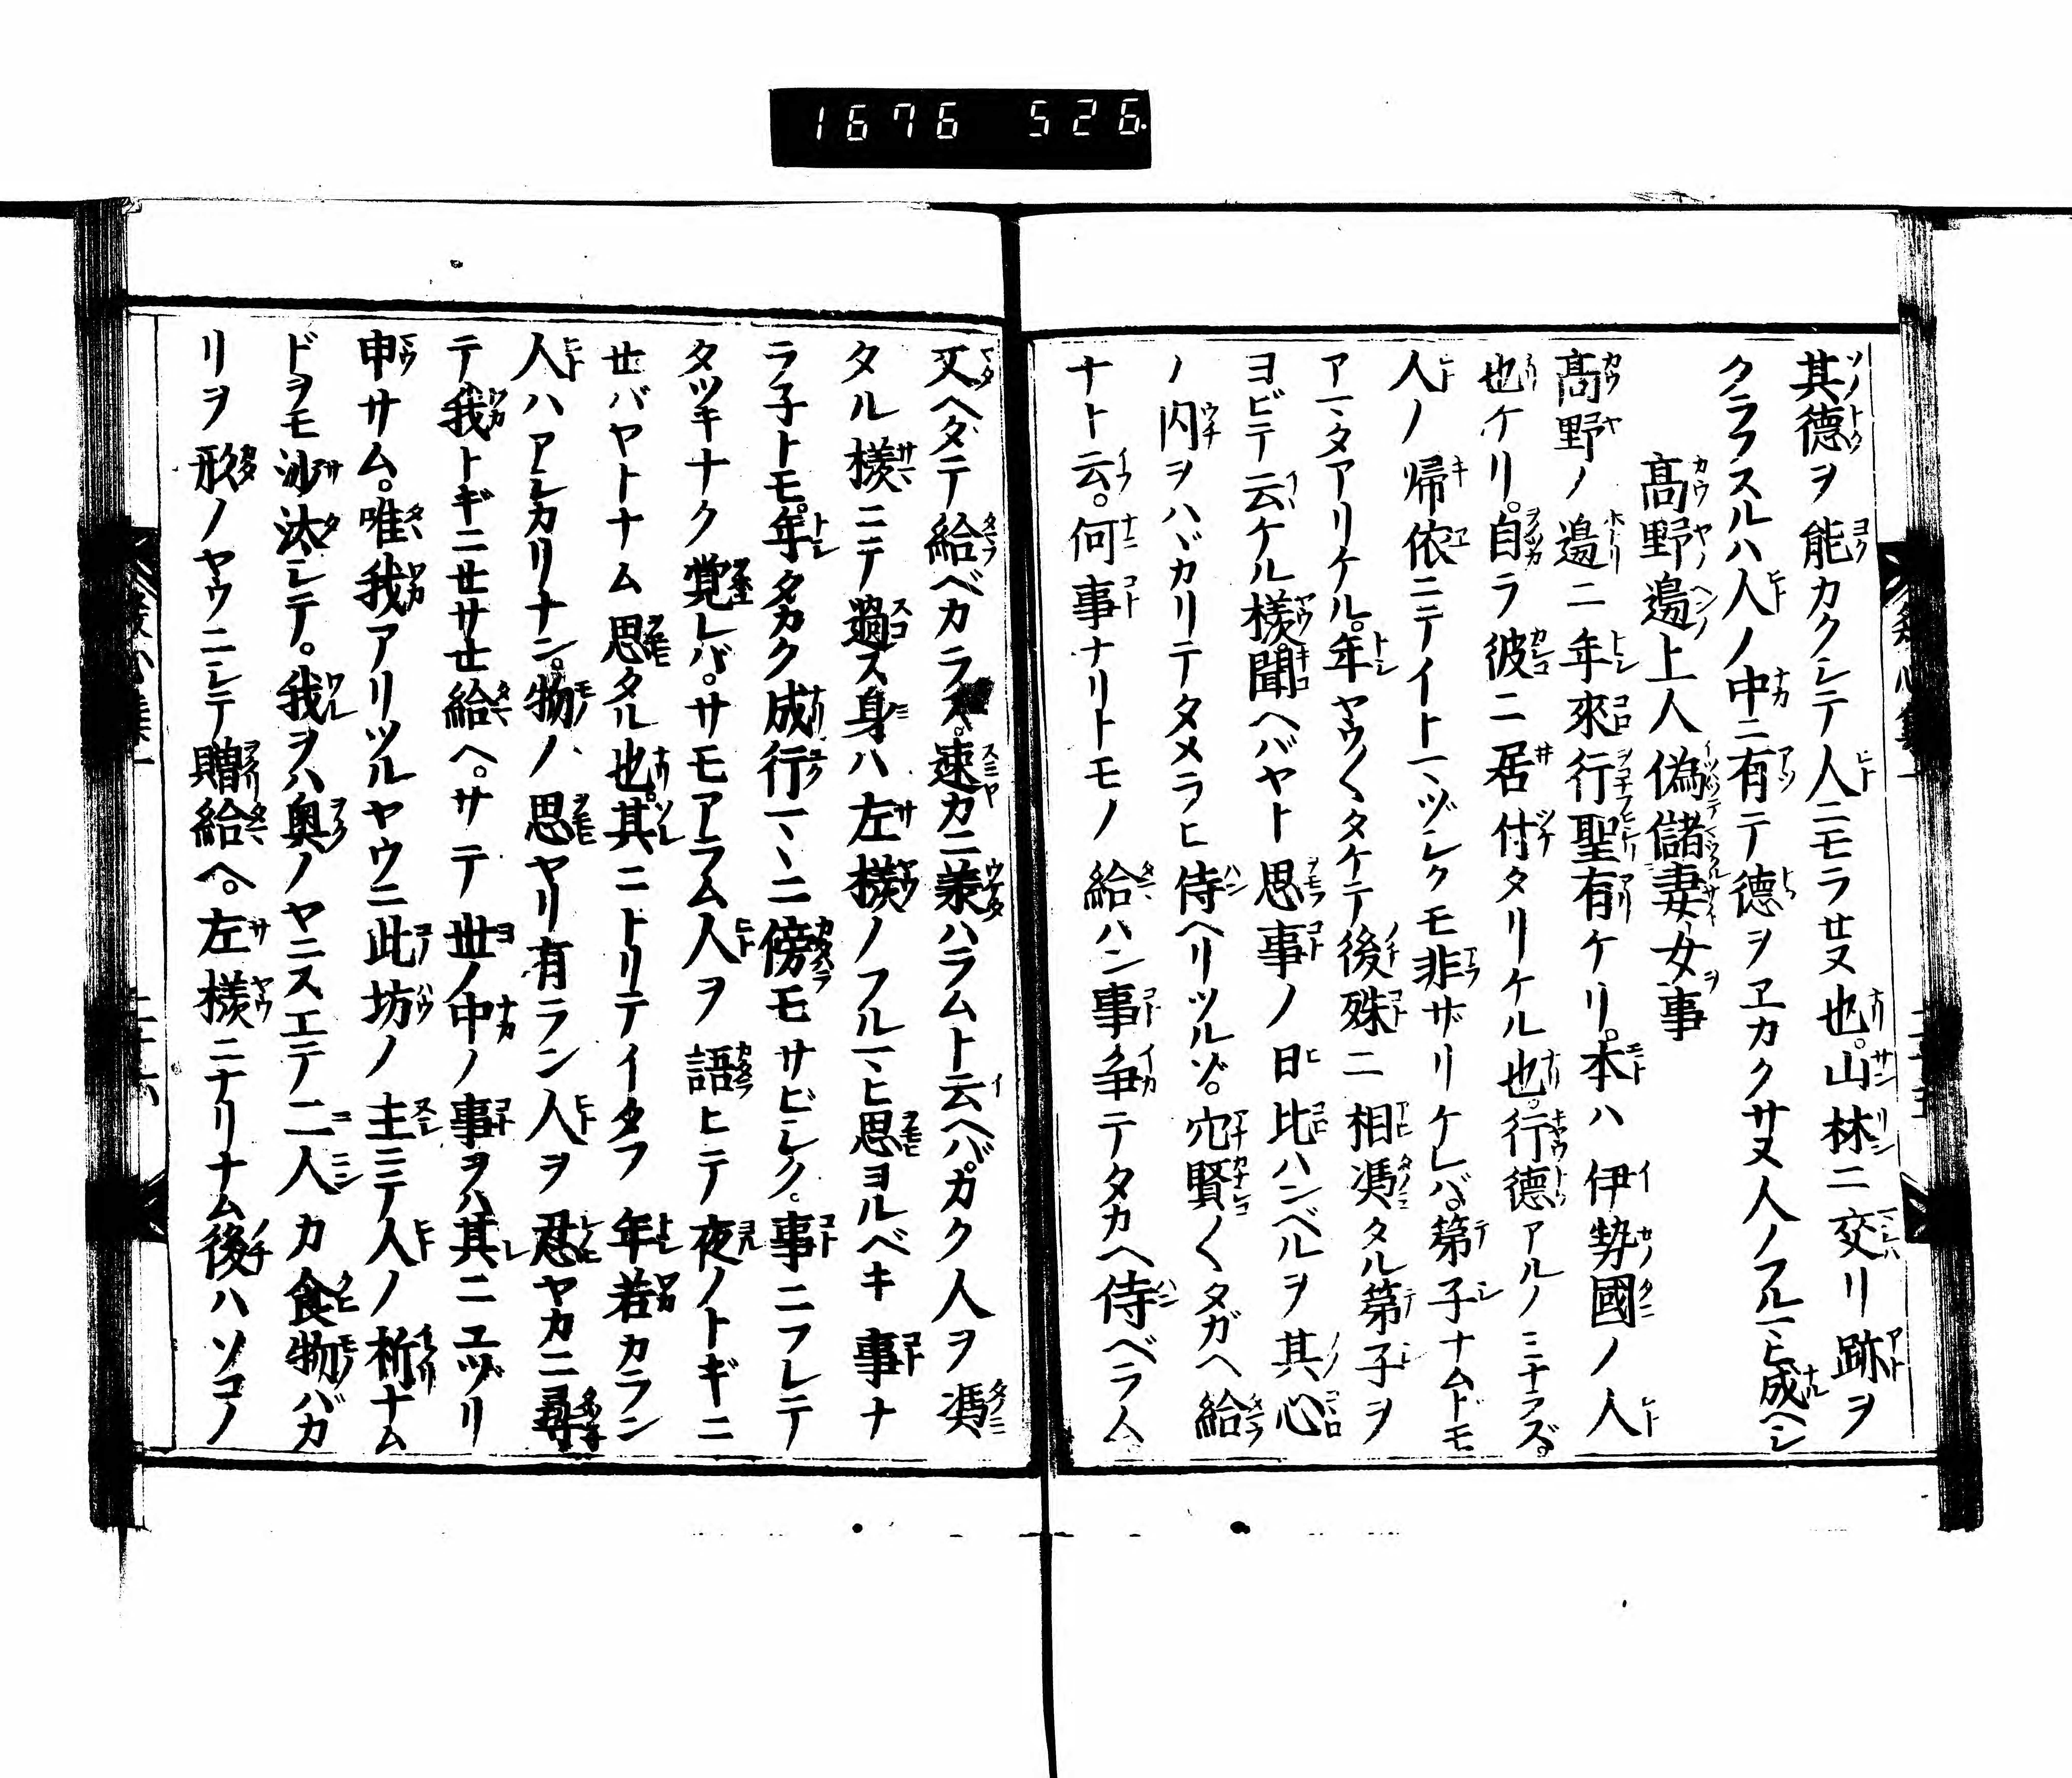 1676 526
其德ヲ能カクシテ人ニモラサヌ也。山林ニ交リ跡ヲ
クラフスルハ人ノ中ニ有テ德ヲヱカクサヌ人ノフルマヒ成ヘシ
髙野邉上人偽儲妻女事
髙野ノ邉ニ年來行聖有ケリ。本ハ伊勢國ノ人
也ケリ。自ラ彼ニ居付タリケル也。行德アルノミナラズ。
人ノ帰依ニテイトマヅシクモ非ザリケレバ。第子ナムドモ
アマタアリケル。年ヤウ〱タケテ後殊ニ相馮タル第子ヲ
ヨビテ云ケル様。聞ヘバヤト思事ノ日比ハンベルヲ其心
ノ内ヲハヾカリテタメラヒ侍ヘリツルゾ。穴賢〱タガヘ給
ナト云。何事ナリトモノ給ハン事争テタカヘ侍ベラム
又ヘダテ給ベカラス。速カニ兼ハラムト云ヘバ。カク人ヲ馮
タル様ニテ過ス身ハ左様ノフルマヒ思ヨルベキ事ナ
ラ子トモ。年タカク成行マヽニ傍モサビシク。事ニフレテ
タツキナク覚レバ。サモアラム人ヲ語ヒテ夜ノトギニ
せバヤトナム思タル也。其ニトリテイタフ年若カラン
人ハアシカリナン。物ノ思ヤリ有ラン人ヲ忍ヤカニ尋
テ我トギニせサせ給ヘ。サテ世ノ中ノ事ヲハ其ニユヅリ
申サム。唯我アリツルヤウニ此坊ノ主ニテ人ノ祈ナム
ドヲモ沙汰シテ。我ヲハ奥ノヤニスエテ二人カ食物バカ
リヲ形ノヤウニシテ贈給ヘ。左様ニナリナム後ハソコノ